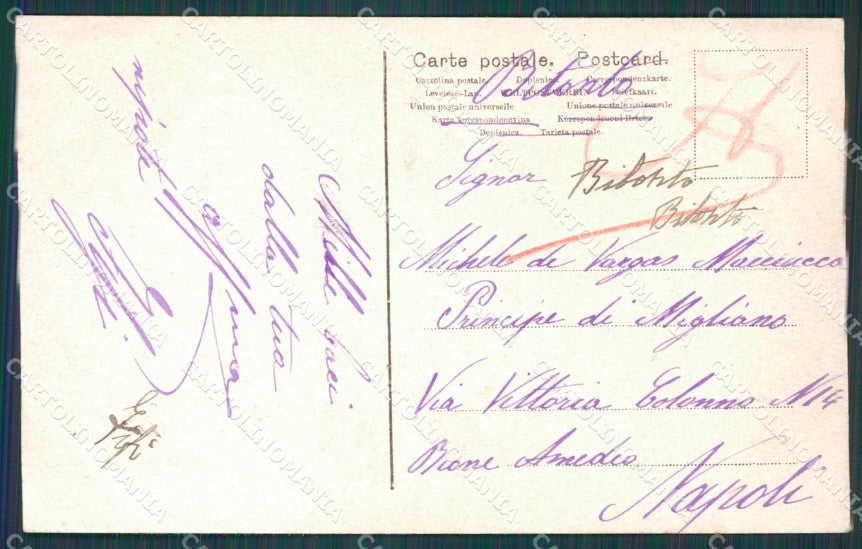 Carte postale. Postcard.
Cartolina postale. Dopisnice. Correspondenzkarte.
Levelező-Lap. WELTPOSTVEREIN Briefkaart.
Union postale universelle Unione postale universale
Karta korespondencyjna Korespondenční lístek
Dopisnica. Tarjeta postale.
Bitonto
Signor Bitonto
Bitonto
Michele de Vargas Macciucca
Principe di Migliano
Via Vittoria Colonna N 14
Rione Amedeo
Napoli
Mille baci
dalla tua
aff/ma
nipote
CARTOLINOMANIA